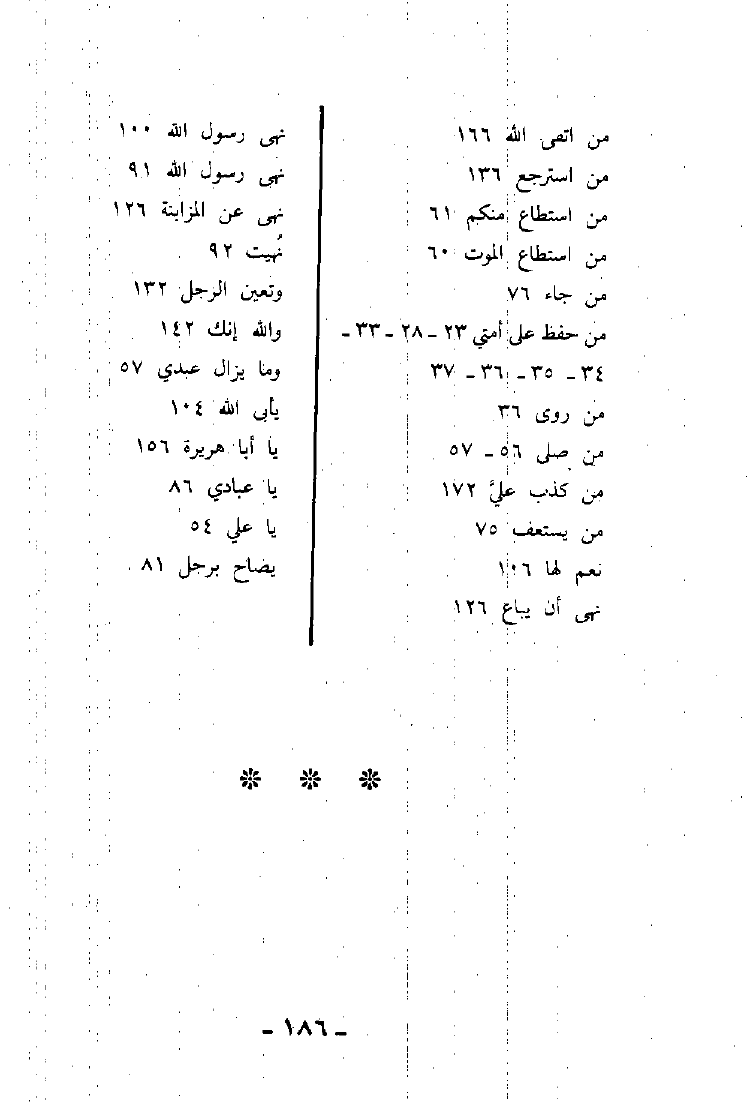 من اتقى الله ١٦٦
من استرجع ١٣٦
من استطاع منكم ٦١
من استطاع الموت ٦٠
من جاء ٧٦
من حفظ على أمتي ٢٣ - ٢٨ - ٣٣ -
٣٤ - ٣٥ - ٣٦ - ٣٧
من روى ٣٦
من صلى ٥٦ - ٥٧
من كذب عليَّ ١٧٢
من يستعف ٧٥
نعم لها ١٠٦
نهى أن يباع ١٢٦
نهى رسول الله ١٠٠
نهى رسول الله ٩١
نهى عن المزابنة ١٢٦
نُهيت ٩٢
وتعين الرجل ١٣٢
والله إنك ١٤٢
وما يزال عبدي ٥٧
يأبى الله ١٠٤
يا أبا هريرة ١٥٦
يا عبادي ٨٦
يا علي ٥٤
يضاح برجل ٨١
- ١٨٦ -